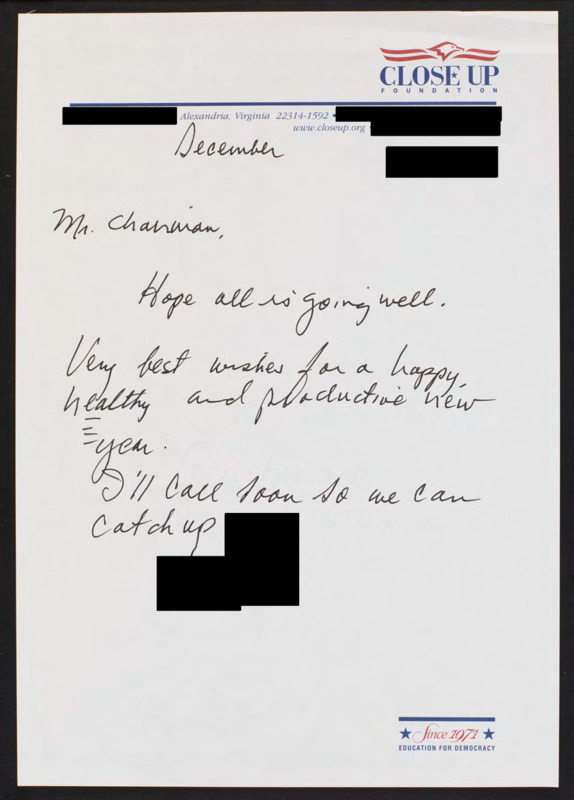 CLOSE UP
FOUNDATION
Alexandria, Virginia 22314-1592 •
www.closeup.org •
December
Mr. Chairman,
Hope all is going well.
Very best wishes for a happy,
healthy and productive new
year.
I'll call soon so we can
catch up
Since 1971
EDUCATION FOR DEMOCRACY